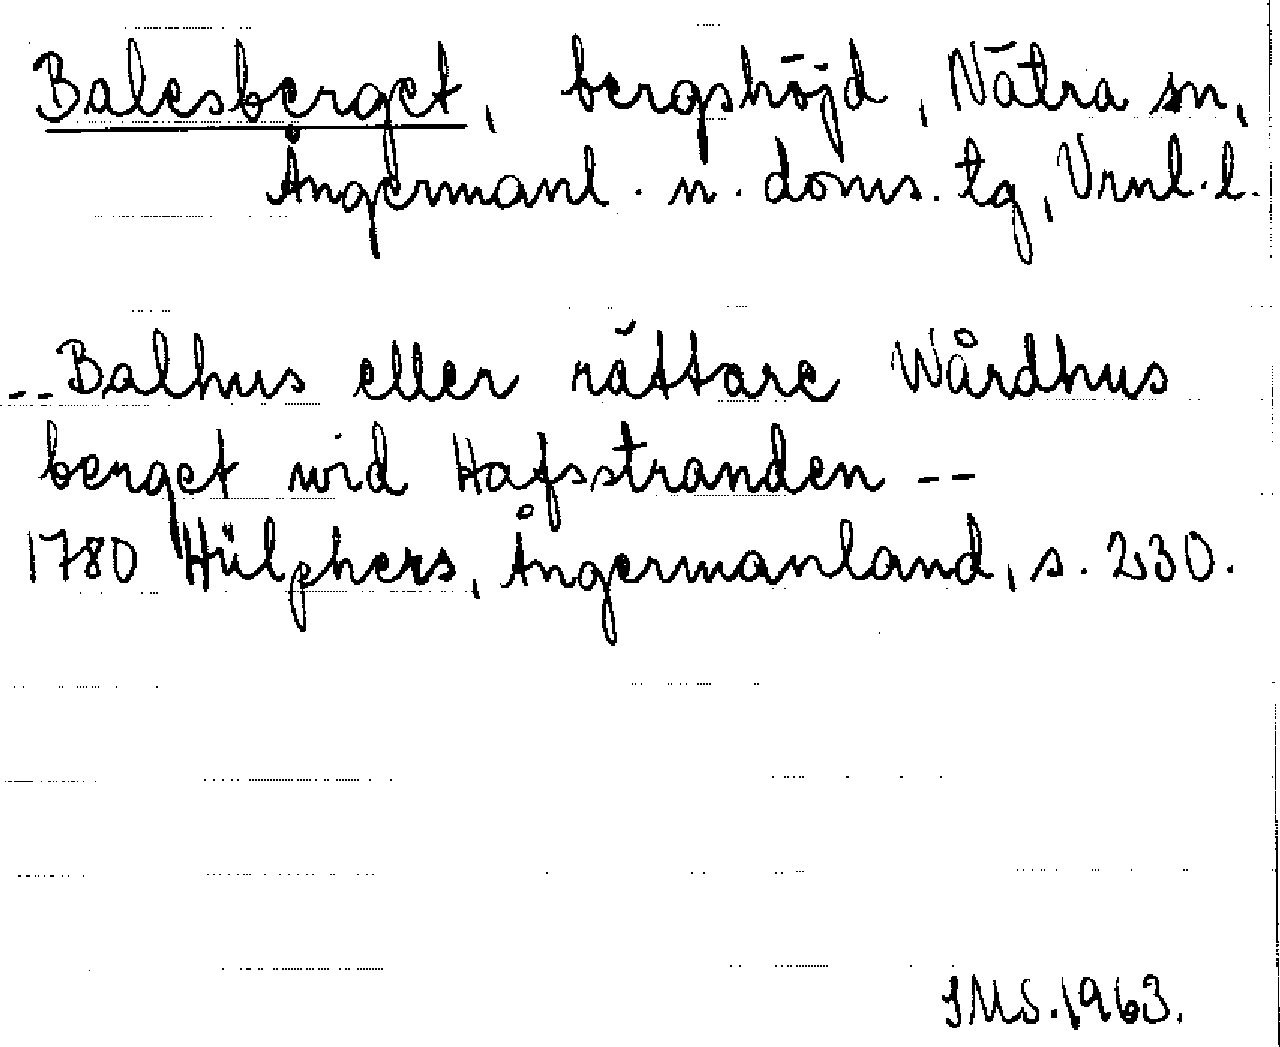 Balesberget, bergshöjd, Nätra sn,
Ångermanl. n. doms. tg, Vrnl. l.
-- Balhus eller rättare Wårdhus
berget wid Hafsstranden --
1780 Hülphers, Ångermanland, s. 230.
IMS. 1963.